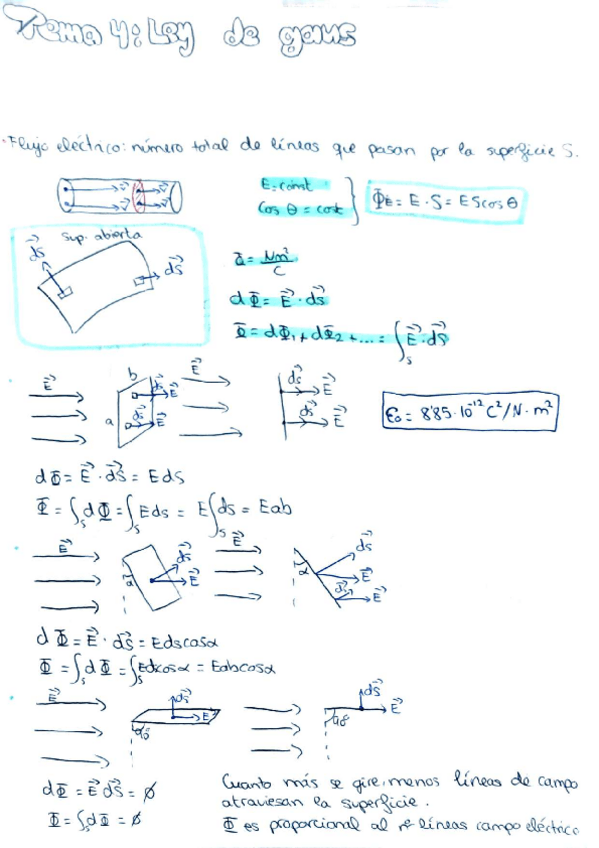 Tema 4: Ley de gaus
• Flujo eléctrico: número total de líneas que pasan por la superficie S.
E = const
cos θ = cost
Φ_E = E · S = E S cos θ
sup. abierta
dS⃗
dS⃗
Φ = Nm²/C
dΦ = E⃗ · dS⃗
Φ = dΦ₁ + dΦ₂ + ... = ∫_S E⃗ · dS⃗
E⃗
b
a
dS⃗
E⃗
dS⃗
E⃗
E⃗
dS⃗
E⃗
dS⃗
E⃗
ε₀ = 8'85 · 10⁻¹² C²/N · m²
dΦ = E⃗ · dS⃗ = E dS
Φ = ∫_S dΦ = ∫_S E ds = E ∫_S ds = E a b
E⃗
α
dS⃗
E⃗
E⃗
α
dS⃗
E⃗
dS⃗
E⃗
dΦ = E⃗ · dS⃗ = E ds cos α
Φ = ∫_S dΦ = ∫_S E ds cos α = E a b cos α
E⃗
dS⃗
E⃗
dS⃗
E⃗
dΦ = E⃗ dS⃗ = ∅
Φ = ∫_S dΦ = ∅
Cuanto más se gire, menos líneas de campo
atraviesan la superficie.
Φ es proporcional al nº líneas campo eléctrico